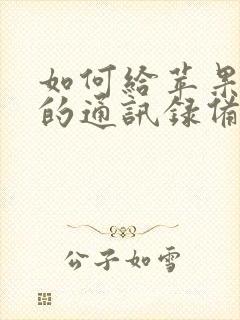 如何给苹果
的通訊録備
公子如雪